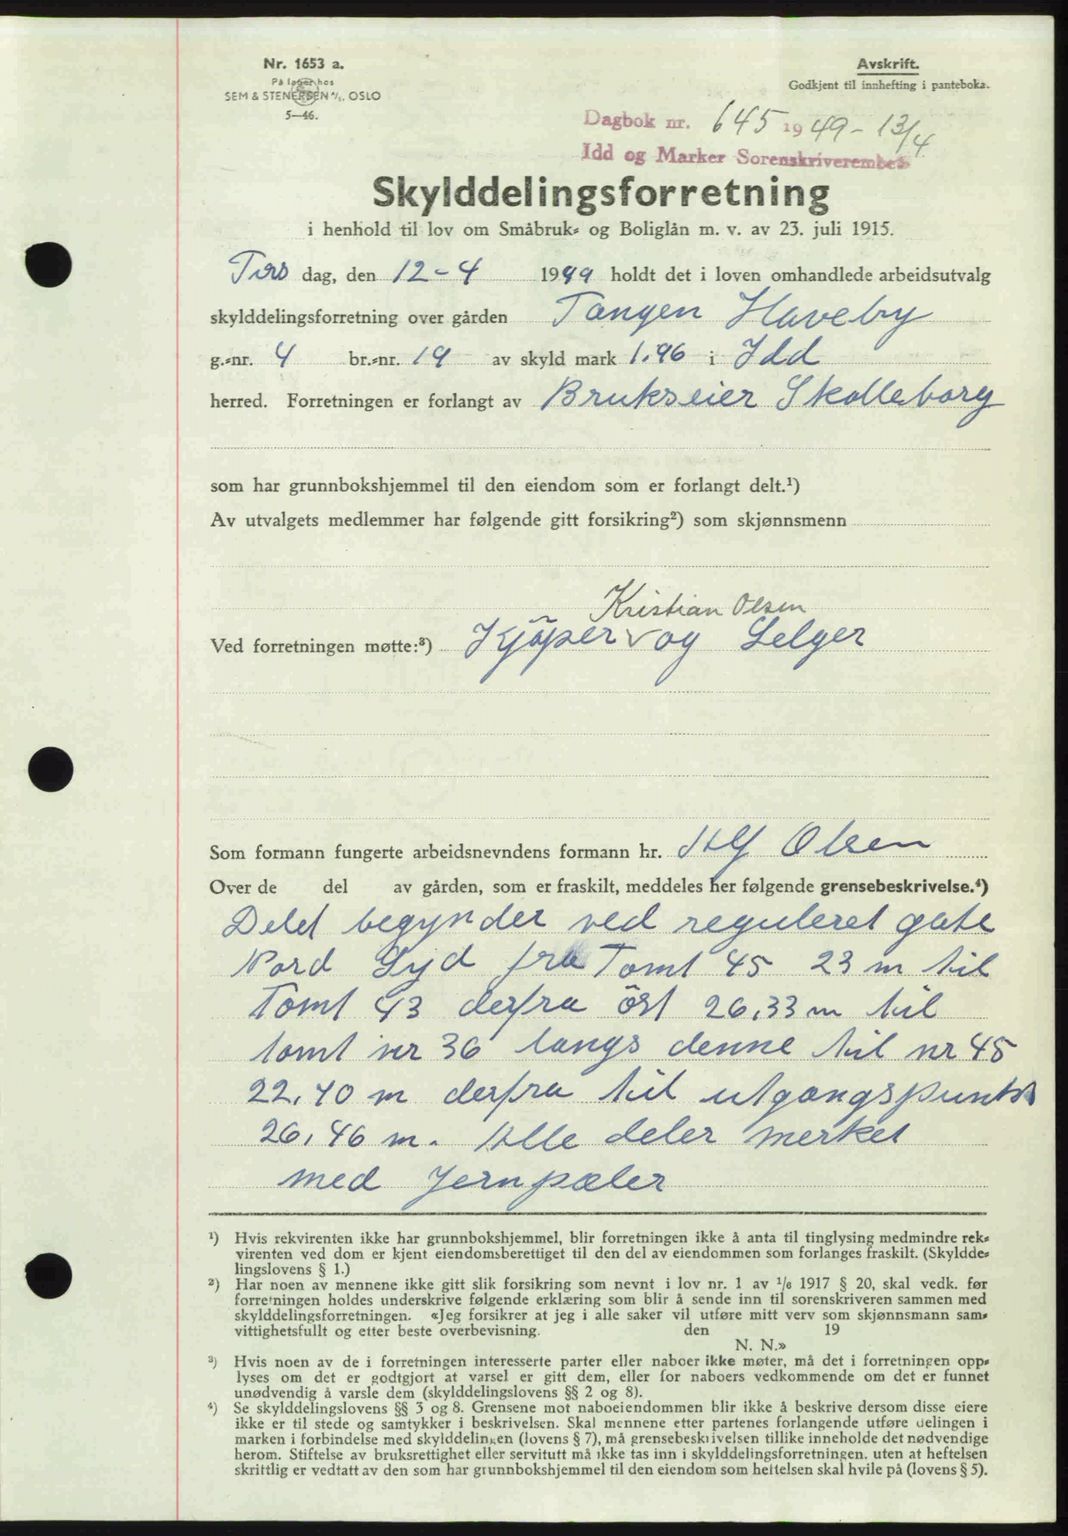 Nr. 1653 a.
På lager hos
SEM & STENERSEN A/S, OSLO
5—46.
Avskrift.
Godkjent til innhefting i panteboka.
Dagbok nr. 645 1949-13/4
Idd og Marker Sorenskriverembe
Skylddelingsforretning
i henhold til lov om Småbruk- og Boliglån m. v. av 23. juli 1915.
Tirs dag, den 12-4 1949 holdt det i loven omhandlede arbeidsutvalg
skylddelingsforretning over gården Tangen Haveby
g.-nr. 4 br.-nr. 19 av skyld mark 1.96 i Idd
herred. Forretningen er forlangt av Brukseier Skolleborg
som har grunnbokshjemmel til den eiendom som er forlangt delt.¹)
Av utvalgets medlemmer har følgende gitt forsikring²) som skjønnsmenn
Kristian Olsen
Ved forretningen møtte:³) Kjöper v og Selger
Som formann fungerte arbeidsnevndens formann hr. Olsen
Over de del av gården, som er fraskilt, meddeles her følgende grensebeskrivelse.⁴)
Delet begynder ved reguleret gate
Nord Syd fra Tomt 45 23 m til
Tomt 43 derfra öst 26,33 m til
tomt nr 36 langs denne til nr 45
22,40 m derfra til utgangspunkt
26,46 m. Alle deler merket
med Jernpæler
¹) Hvis rekvirenten ikke har grunnbokshjemmel, blir forretningen ikke å anta til tinglysing medmindre rek-
virenten ved dom er kjent eiendomsberettiget til den del av eiendommen som forlanges fraskilt. (Skyldde-
lingslovens § 1.)
²) Har noen av mennene ikke gitt slik forsikring som nevnt i lov nr. 1 av 1/6 1917 § 20, skal vedk. før
forretningen holdes underskrive følgende erklæring som blir å sende inn til sorenskriveren sammen med
skylddelingsforretningen. «Jeg forsikrer at jeg i alle saker vil utføre mitt verv som skjønnsmann sam-
vittighetsfullt og etter beste overbevisning. den 19
N. N.»
³) Hvis noen av de i forretningen interesserte parter eller naboer ikke møter, må det i forretningen opp-
lyses om det er godtgjort at varsel er gitt dem, eller for naboers vedkommende om det er funnet
unødvendig å varsle dem (skylddelingslovens §§ 2 og 8).
⁴) Se skylddelingslovens §§ 3 og 8. Grensene mot naboeiendommen blir ikke å beskrive dersom disse eiere
ikke er til stede og samtykker i beskrivelsen. Skal mennene etter partenes forlangende utføre delingen i
marken i forbindelse med skylddelingen (lovens § 7), må grensebeskrivelsen tillike inneholde det nødvendige
herom. Stiftelse av bruksrettighet eller servitutt må ikke tas inn i skylddelingsforretningen. uten at heftelsen
skriftlig er vedtatt av den som har grunnbokshjemmel til den eiendom som heftelsen skal hvile på (lovens § 5).